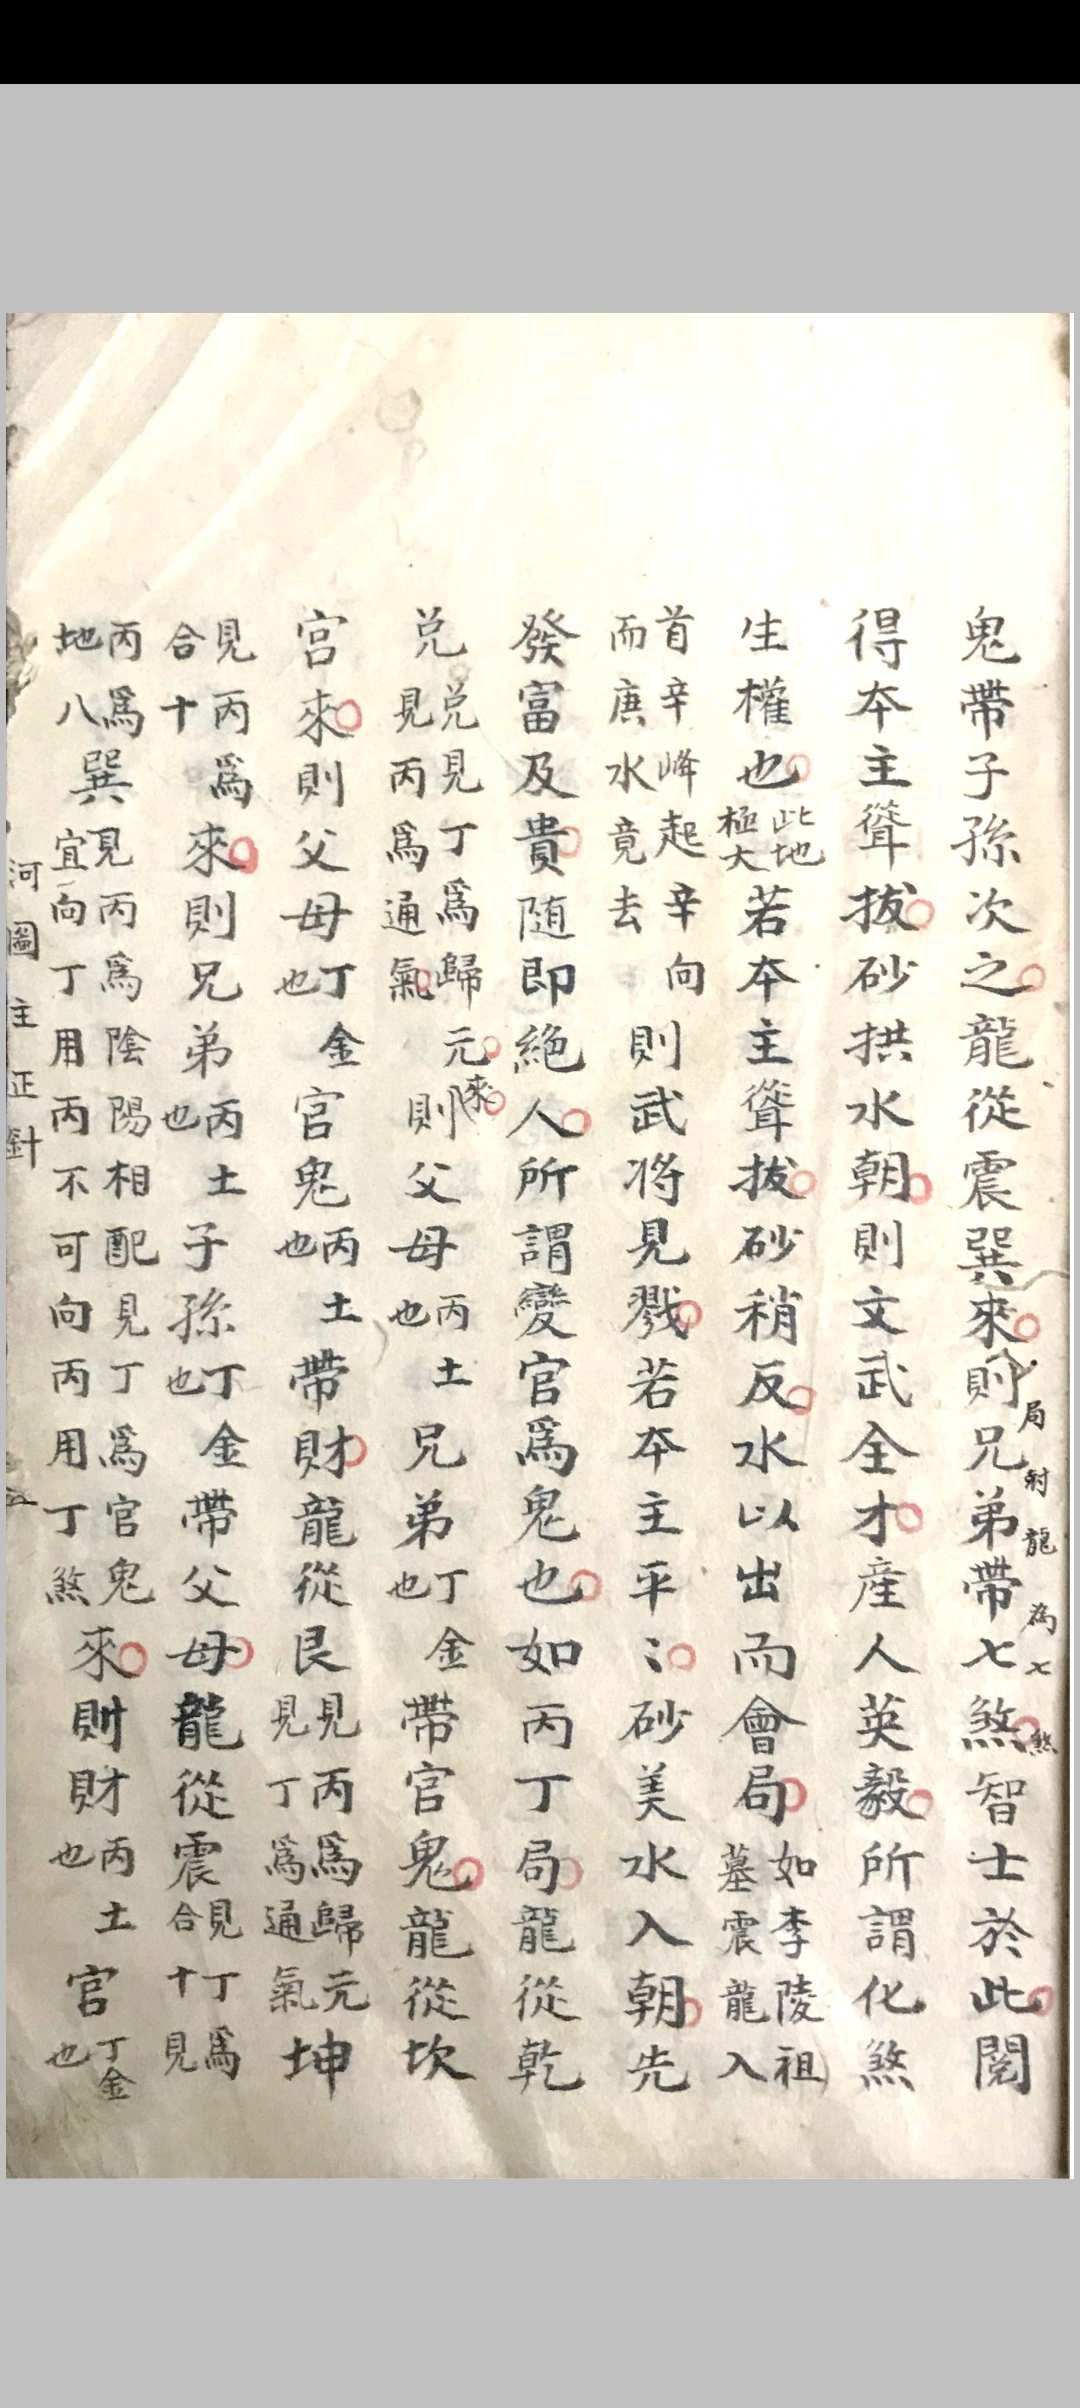 鬼帶子孫次之龍從震巽來則兄弟帶七煞智士於此閱
局尅龍為七煞
得本主聳拔砂拱水朝則文武全才產人英毅所謂化煞
生權也此地極大若本主聳拔砂稍反水以出而會局如李陵祖墓震龍入
首辛峰起辛向而庚水竟去則武将見戮若本主平〻砂美水入朝先
發富及貴随即絕人所謂變官為鬼也如丙丁局龍從乾
兌兌見丁為歸元見丙為通氣來則父母丙土也兄弟丁金也帶官鬼龍從坎
宮來則父母丁金也官鬼丙土也帶財龍從艮見丙為歸元見丁為通氣坤
見丙為合十來則兄弟丙土也子孫丁金也帶父母龍從震見丁為合十見
丙為地八巽見丙為陰陽相配見丁為官鬼宜向丁用丙不可向丙用丁煞來則財丙土也官丁金也
河圖主正針